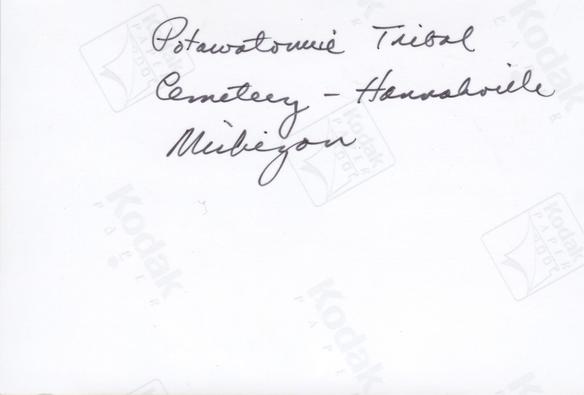 Potawatomie Tribal
Cemetery - Hannahville
Michigan
Kodak
PAPER
Kodak
PAPER
Kodak
PAPER
Kodak
PAPER